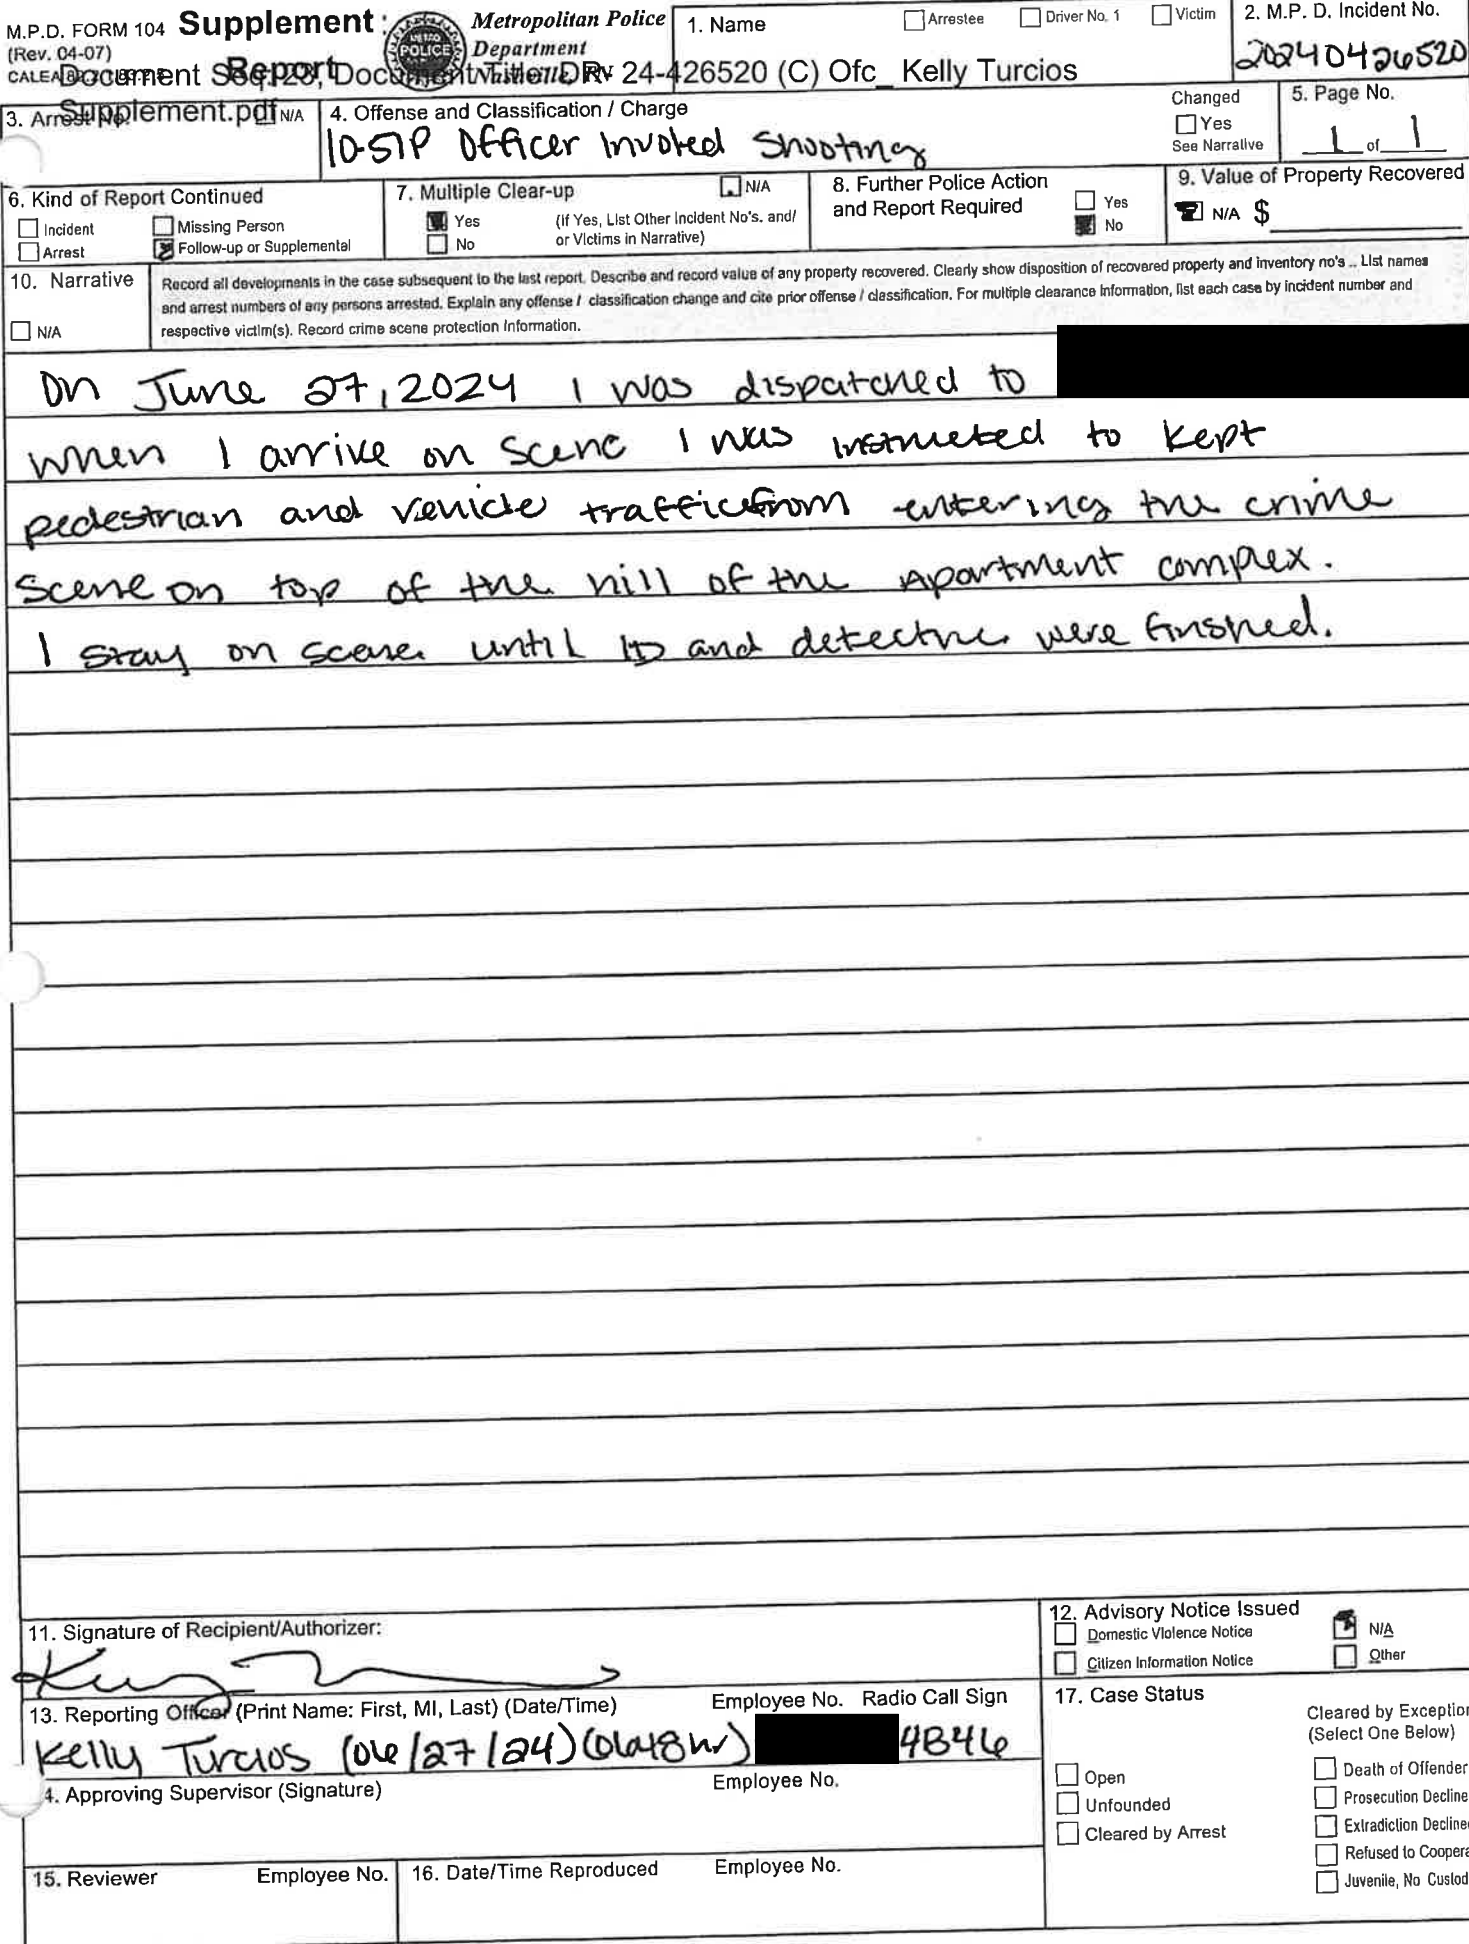 M.P.D. FORM 104 Supplement
(Rev. 04-07) Report
Metropolitan Police
Department
Nashville,
Document Seq. 23, Document Title: DRV 24-426520 (C) Ofc_ Kelly Turcios
Supplement.pdf
1. Name ☐ Arrestee ☐ Driver No. 1 ☐ Victim
2. M. P. D. Incident No.
20240426520
3. Arrest No. N/A
4. Offense and Classification / Charge
10-57P Officer Involed Shooting
Changed
☐ Yes
See Narrative
5. Page No.
1 of 1
6. Kind of Report Continued
☐ Incident ☐ Missing Person
☐ Arrest ☒ Follow-up or Supplemental
7. Multiple Clear-up ☐ N/A
☒ Yes (If Yes, List Other Incident No's. and/
☐ No or Victims in Narrative)
8. Further Police Action
and Report Required
☐ Yes
☒ No
9. Value of Property Recovered
☒ N/A $
10. Narrative
☐ N/A
Record all developments in the case subsequent to the last report. Describe and record value of any property recovered. Clearly show disposition of recovered property and inventory no's .. List names
and arrest numbers of any persons arrested. Explain any offense / classification change and cite prior offense / classification. For multiple clearance information, list each case by incident number and
respective victim(s). Record crime scene protection Information.
On June 27, 2024 I was dispatched to
when I arrive on scene I was instructed to kept
pedestrian and vehicle traffic from entering the crime
scene on top of the hill of the Apartment complex.
I stay on scene until ID and detective were finished.
11. Signature of Recipient/Authorizer:
12. Advisory Notice Issued
☐ Domestic Violence Notice ☒ N/A
☐ Citizen Information Notice ☐ Other
13. Reporting Officer (Print Name: First, MI, Last) (Date/Time) Employee No. Radio Call Sign
Kelly Turcios (06/27/24) 4B46
14. Approving Supervisor (Signature) Employee No.
15. Reviewer Employee No.
16. Date/Time Reproduced Employee No.
17. Case Status
☐ Open
☐ Unfounded
☐ Cleared by Arrest
Cleared by Exception
(Select One Below)
☐ Death of Offender
☐ Prosecution Decline
☐ Extradiction Decline
☐ Refused to Coopera
☐ Juvenile, No Custod